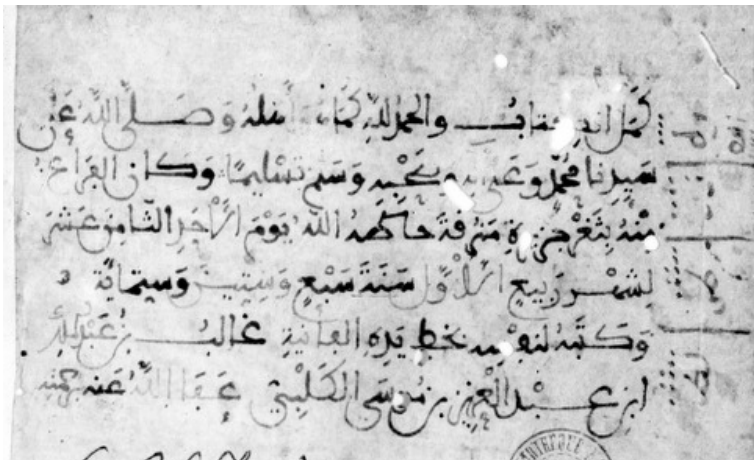 كمل الكتاب والحمد لله كما هو أهله وصلى الله على
سيدنا محمد وعلى آله وصحبه وسلم تسليما وكان الفراغ
منه بثغر جزيرة منرقة حاطها الله يوم الأحد الثامن عشر
لشهر ربيع الأول سنة سبع وستين وستمائة
وكتبه لنفسه بخط يده الفانية غالب بن عبد الله
ابن عبد العزيز بن موسى الكلبي عفا الله عنه بمنه